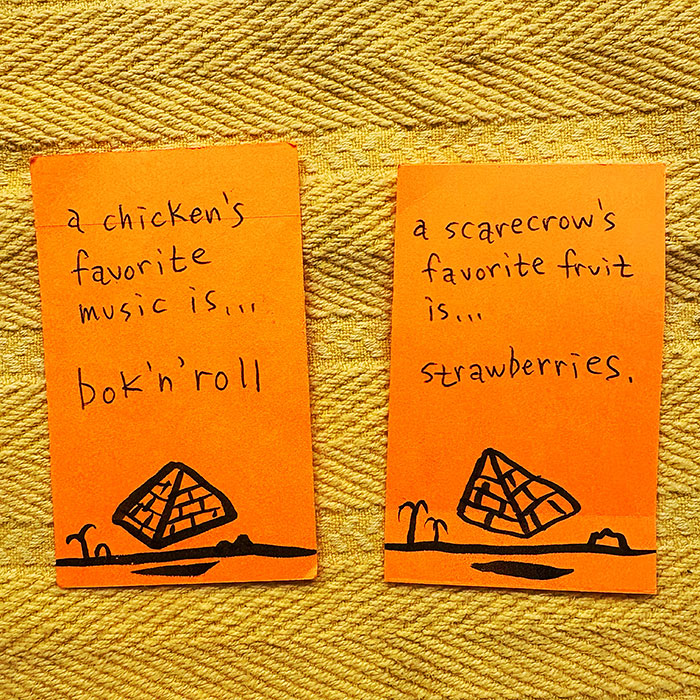 a chicken's
favorite
music is...
bok'n'roll
a scarecrow's
favorite fruit
is...
strawberries.